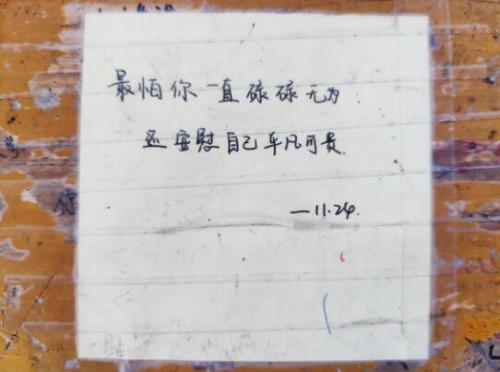 最怕你一直碌碌无为
还安慰自己平凡可贵.
—11.24.
你